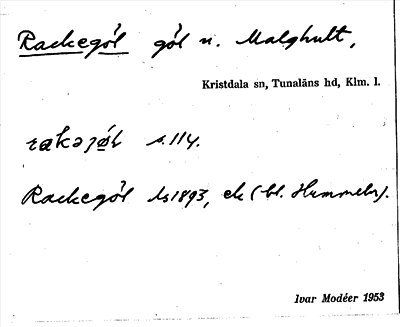 Rackegöl göl n. Malghult,
Kristdala sn, Tunaläns hd, Klm. l.
rakəgø̀l s. 114.
Rackegöl ls 1893, ek (bl. Hummeln).
Ivar Modéer 1953